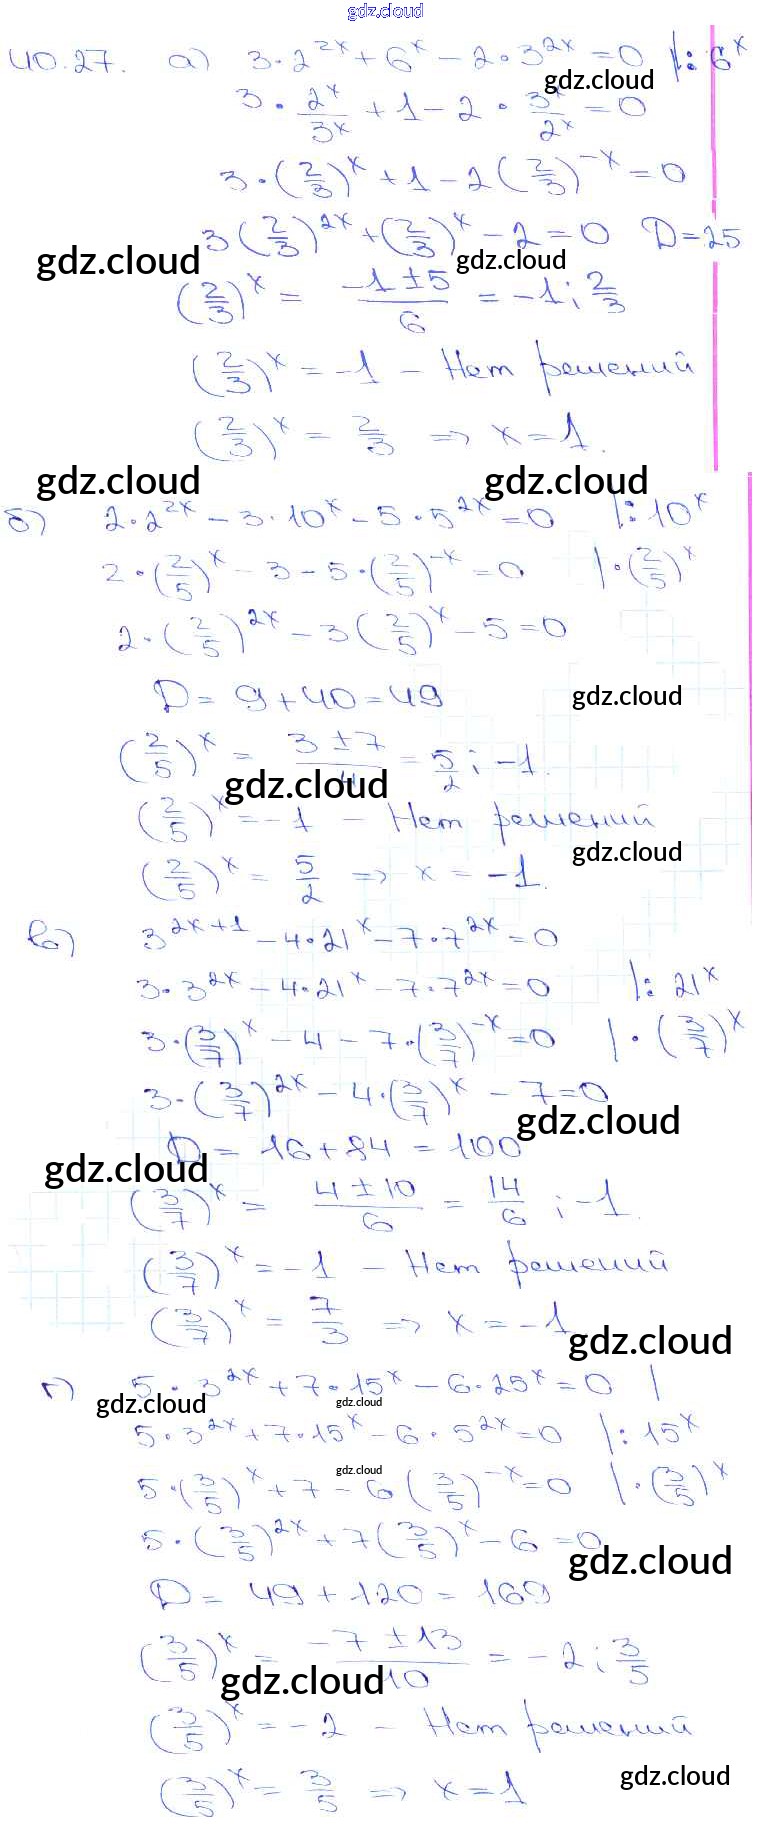 gdz.cloud
40.27. а) 3·2^{2x} + 6^x − 2·3^{2x} = 0 |: 6^x
gdz.cloud
3·\frac{2^x}{3^x} + 1 − 2·\frac{3^x}{2^x} = 0
3·(\frac{2}{3})^x + 1 − 2(\frac{2}{3})^{−x} = 0
3(\frac{2}{3})^{2x} + (\frac{2}{3})^x − 2 = 0 D = 25
gdz.cloud gdz.cloud
(\frac{2}{3})^x = \frac{−1 ± 5}{6} = −1; \frac{2}{3}
(\frac{2}{3})^x = −1 − Нет решений
(\frac{2}{3})^x = \frac{2}{3} => x = 1.
gdz.cloud gdz.cloud
б) 2·2^{2x} − 3·10^x − 5·5^{2x} = 0 |: 10^x
2·(\frac{2}{5})^x − 3 − 5·(\frac{2}{5})^{−x} = 0 |·(\frac{2}{5})^x
2·(\frac{2}{5})^{2x} − 3(\frac{2}{5})^x − 5 = 0
D = 9 + 40 = 49 gdz.cloud
(\frac{2}{5})^x = \frac{3 ± 7}{4} = \frac{5}{2}; −1.
gdz.cloud
(\frac{2}{5})^x = −1 − Нет решений
gdz.cloud
(\frac{2}{5})^x = \frac{5}{2} => x = −1.
в) 3^{2x+1} − 4·21^x − 7·7^{2x} = 0
3·3^{2x} − 4·21^x − 7·7^{2x} = 0 |: 21^x
3·(\frac{3}{7})^x − 4 − 7·(\frac{3}{7})^{−x} = 0 |·(\frac{3}{7})^x
3·(\frac{3}{7})^{2x} − 4·(\frac{3}{7})^x − 7 = 0
gdz.cloud
D = 16 + 84 = 100
gdz.cloud
(\frac{3}{7})^x = \frac{4 ± 10}{6} = \frac{14}{6}; −1.
(\frac{3}{7})^x = −1 − Нет решений
(\frac{3}{7})^x = \frac{7}{3} => x = −1
gdz.cloud
г) 5·3^{2x} + 7·15^x − 6·25^x = 0 |
gdz.cloud gdz.cloud
5·3^{2x} + 7·15^x − 6·5^{2x} = 0 |: 15^x
gdz.cloud
5·(\frac{3}{5})^x + 7 − 6(\frac{3}{5})^{−x} = 0 |·(\frac{3}{5})^x
5·(\frac{3}{5})^{2x} + 7(\frac{3}{5})^x − 6 = 0
gdz.cloud
D = 49 + 120 = 169
(\frac{3}{5})^x = \frac{−7 ± 13}{10} = −2; \frac{3}{5}
gdz.cloud
(\frac{3}{5})^x = −2 − Нет решений
(\frac{3}{5})^x = \frac{3}{5} => x = 1
gdz.cloud